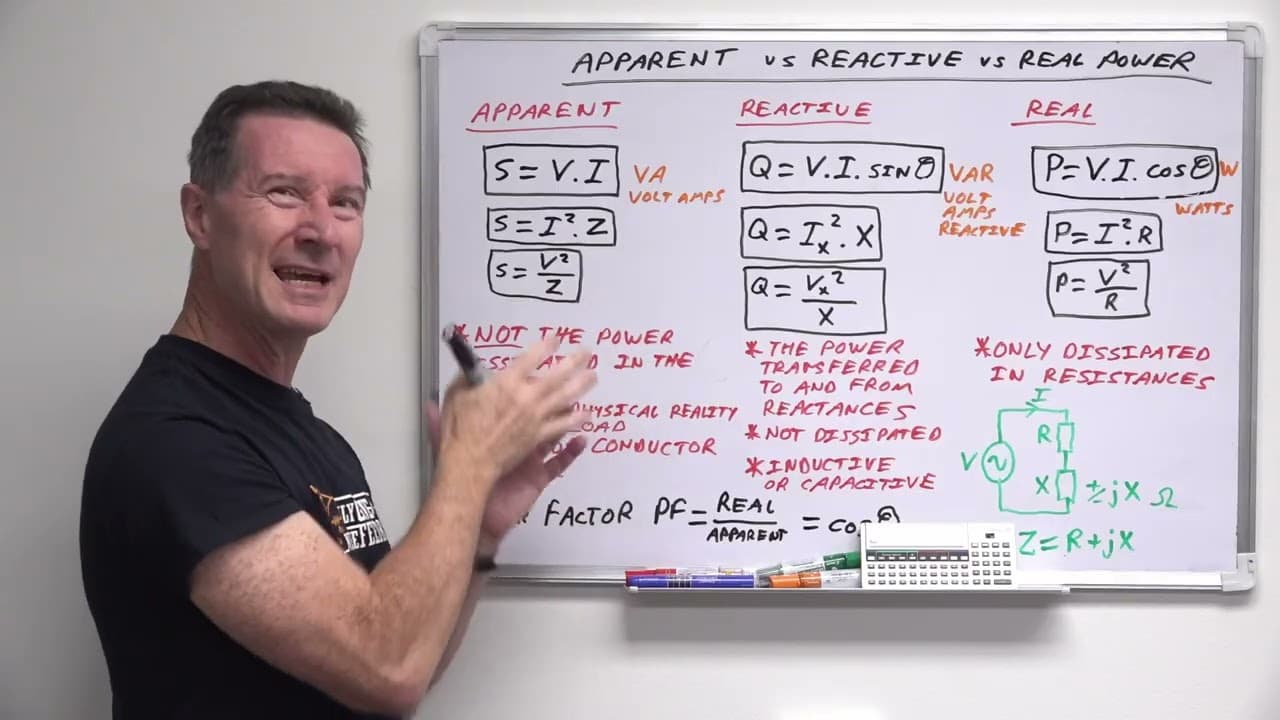 APPARENT vs REACTIVE vs REAL POWER
APPARENT
S = V.I
VA
VOLT AMPS
S = I².Z
S = V²/Z
* NOT THE POWER
IN THE
PHYSICAL REALITY
CONDUCTOR
REACTIVE
Q = V.I. SIN θ
VAR
VOLT
AMPS
REACTIVE
Q = Iₓ². X
Q = Vₓ²/X
* THE POWER
TRANSFERRED
TO AND FROM
REACTANCES
* NOT DISSIPATED
* INDUCTIVE
OR CAPACITIVE
REAL
P = V.I. COS θ
W
WATTS
P = I².R
P = V²/R
* ONLY DISSIPATED
IN RESISTANCES
I
R
V
X
±jX Ω
Z = R+jX
FACTOR PF = REAL/APPARENT = COS θ